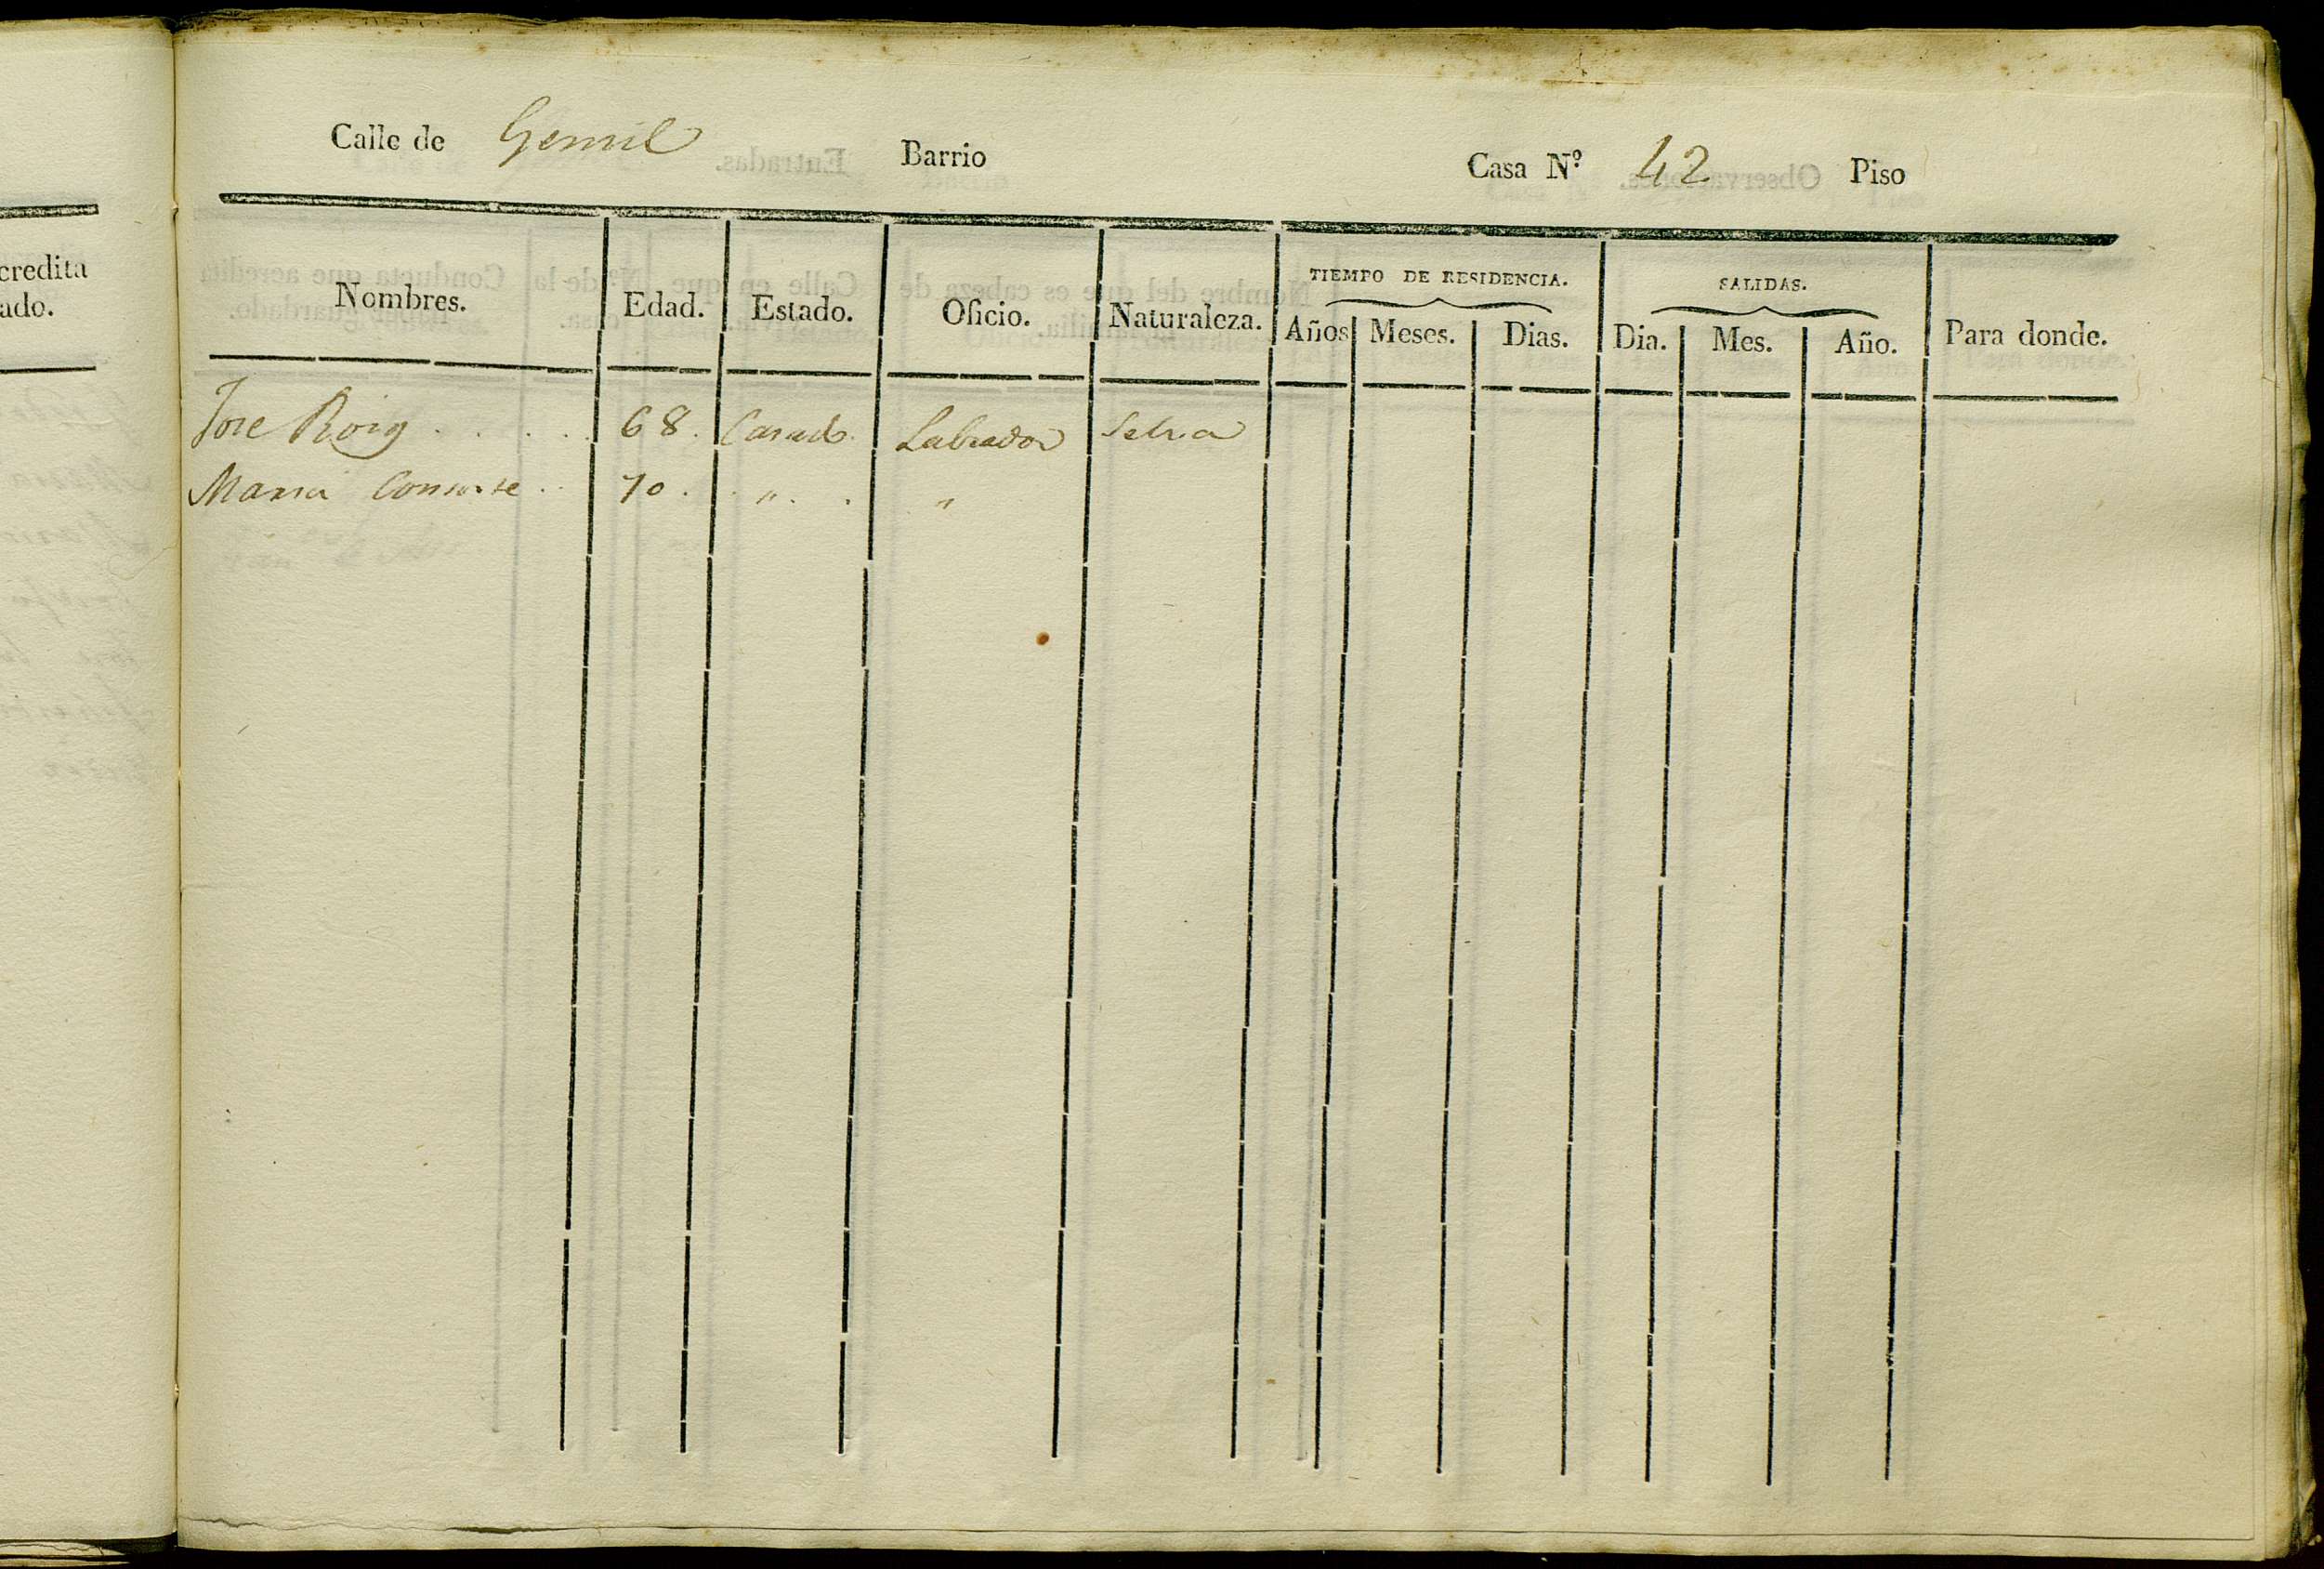 credita
ado.
Calle de Gemil Barrio Casa Nº 42 Piso
Nombres. Edad. Estado. Oficio. Naturaleza. TIEMPO DE RESIDENCIA. Años Meses. Dias. SALIDAS. Dia. Mes. Año. Para donde.
Jose Roig . . . . . 68. Casado. Labrador Selva
Maria Consorte . . 70. . " . . "